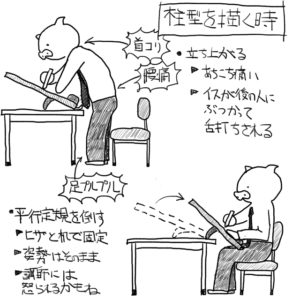 柱型を描く時
首コリ
腰痛
足プルプル
・立ち上がる
▶あちこち痛い
▶イスが後の人に
ぶつかって
舌打ちされる
・平行定規を倒す
▶ヒザと机で固定
▶姿勢はそのまま
▶講師には
怒られるかもね